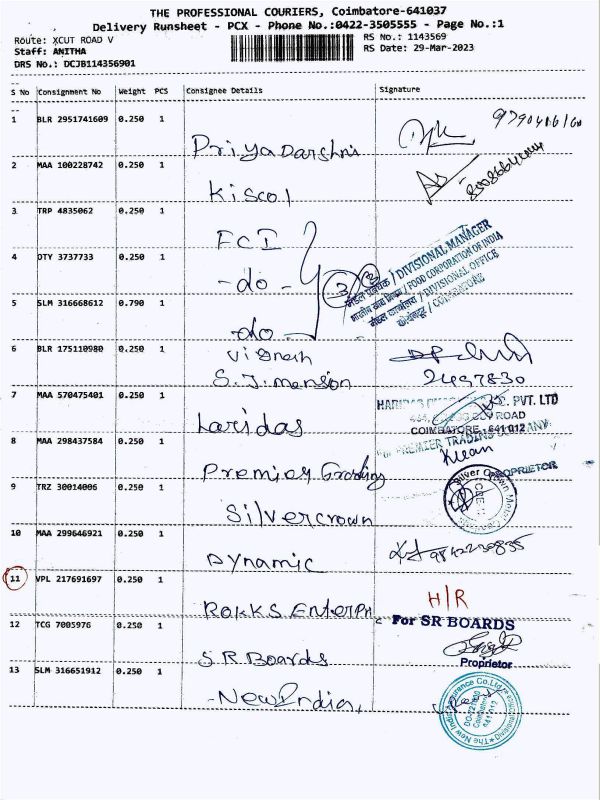 THE PROFESSIONAL COURIERS, Coimbatore-641037
Delivery Runsheet - PCX - Phone No.:0422-3505555 - Page No.:1
Route: XCUT ROAD V RS No.: 1143569
Staff: ANITHA RS Date: 29-Mar-2023
DRS No.: DCJB114356901
S No Consignment No Weight PCS Consignee Details Signature
1 BLR 2951741609 0.250 1 Priya Darshni
2 MAA 100228742 0.250 1 Kiscol
3 TRP 4835062 0.250 1 FCI
4 OTY 3737733 0.250 1 -do-
मंडल प्रबंधक / DIVISIONAL MANAGER
भारतीय खाद्य निगम / FOOD CORPORATION OF INDIA
मंडल कार्यालय / DIVISIONAL OFFICE
कोयंबटूर / COIMBATORE
5 SLM 316668612 0.790 1 -do-
6 BLR 175110980 0.250 1 Vignesh
S.J. mension 2497830
7 MAA 570475401 0.250 1 Haridas
PVT. LTD
ROAD
COIMBATORE - 641 012
8 MAA 298437584 0.250 1 Premier Trading
PREMIER TRADING COMPANY
PROPRIETOR
9 TRZ 30014006 0.250 1 Silvercrown
Silver Crown
10 MAA 299646921 0.250 1 Dynamic
11 VPL 217691697 0.250 1 Rakks Enterpri
H/R
12 TCG 7005976 0.250 1 S.R Boards
For SR BOARDS
Proprietor
13 SLM 316651912 0.250 1 -New India,
The New India Assurance Co.Ltd.
Coimbatore
641 012